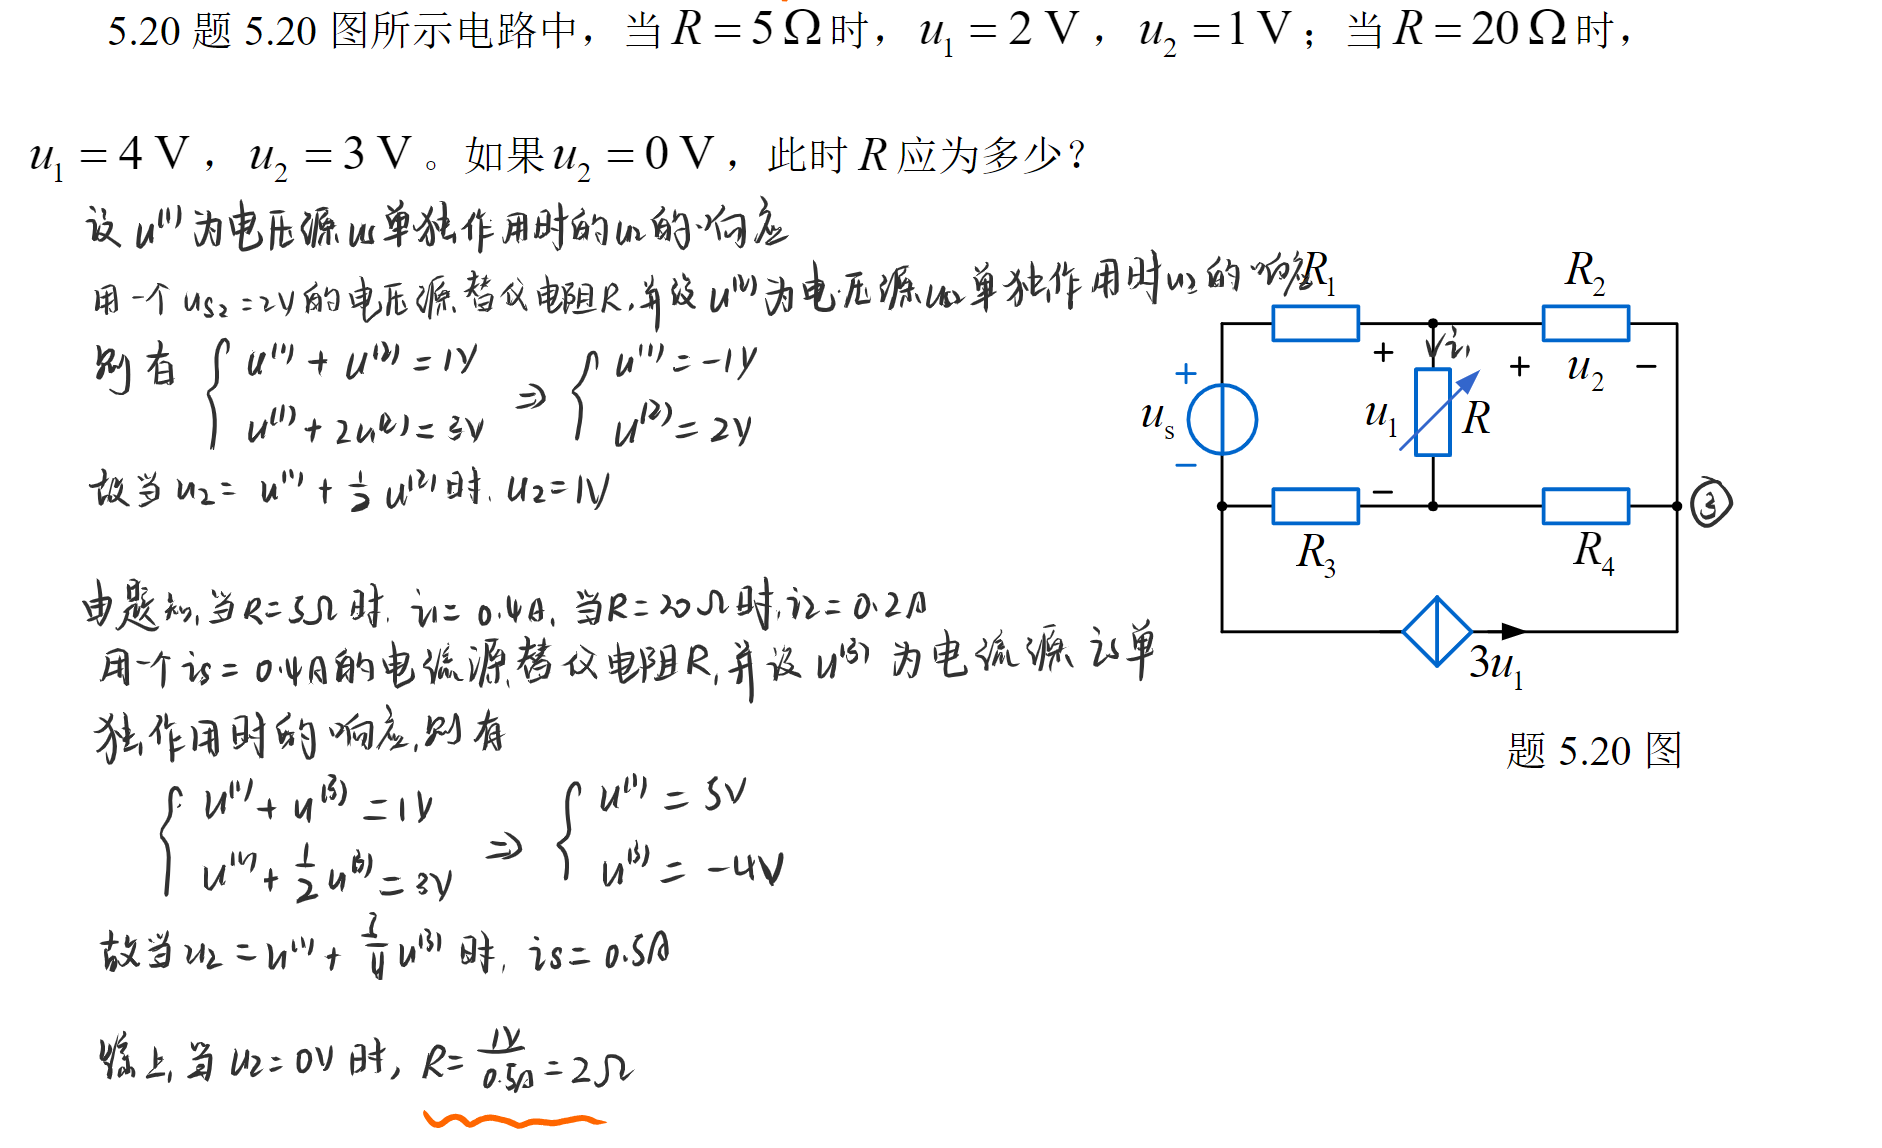 5.20 题 5.20 图所示电路中，当 R = 5 Ω 时， u₁ = 2 V ， u₂ = 1 V ；当 R = 20 Ω 时，
u₁ = 4 V ， u₂ = 3 V 。如果 u₂ = 0 V ，此时 R 应为多少？
设 u⁽¹⁾ 为电压源 us 单独作用时的 u₂ 的响应
用一个 us₂ = 2V 的电压源替代电阻R，并设 u⁽²⁾ 为电压源 us₂ 单独作用时 u₂ 的响应
则有 { u⁽¹⁾ + u⁽²⁾ = 1V ⇒ { u⁽¹⁾ = -1V
u⁽¹⁾ + 2u⁽²⁾ = 3V u⁽²⁾ = 2V
故当 u₂ = u⁽¹⁾ + 1/2 u⁽²⁾ 时. u₂ = 1V
由题知，当 R = 5Ω 时. i₁ = 0.4A. 当 R = 20Ω 时. i₂ = 0.2A
用一个 is = 0.4A 的电流源替代电阻R，并设 u⁽³⁾ 为电流源 is 单
独作用时的响应，则有
{ u⁽¹⁾ + u⁽³⁾ = 1V ⇒ { u⁽¹⁾ = 5V
u⁽¹⁾ + 1/2 u⁽³⁾ = 3V u⁽³⁾ = -4V
故当 u₂ = u⁽¹⁾ + 5/4 u⁽³⁾ 时. is = 0.5A
综上，当 u₂ = 0V 时， R = 1V/0.5A = 2Ω
R₁
R₂
+ i₁ + u₂ −
+
uₛ
−
u₁ R
−
③
R₃
R₄
3u₁
题 5.20 图